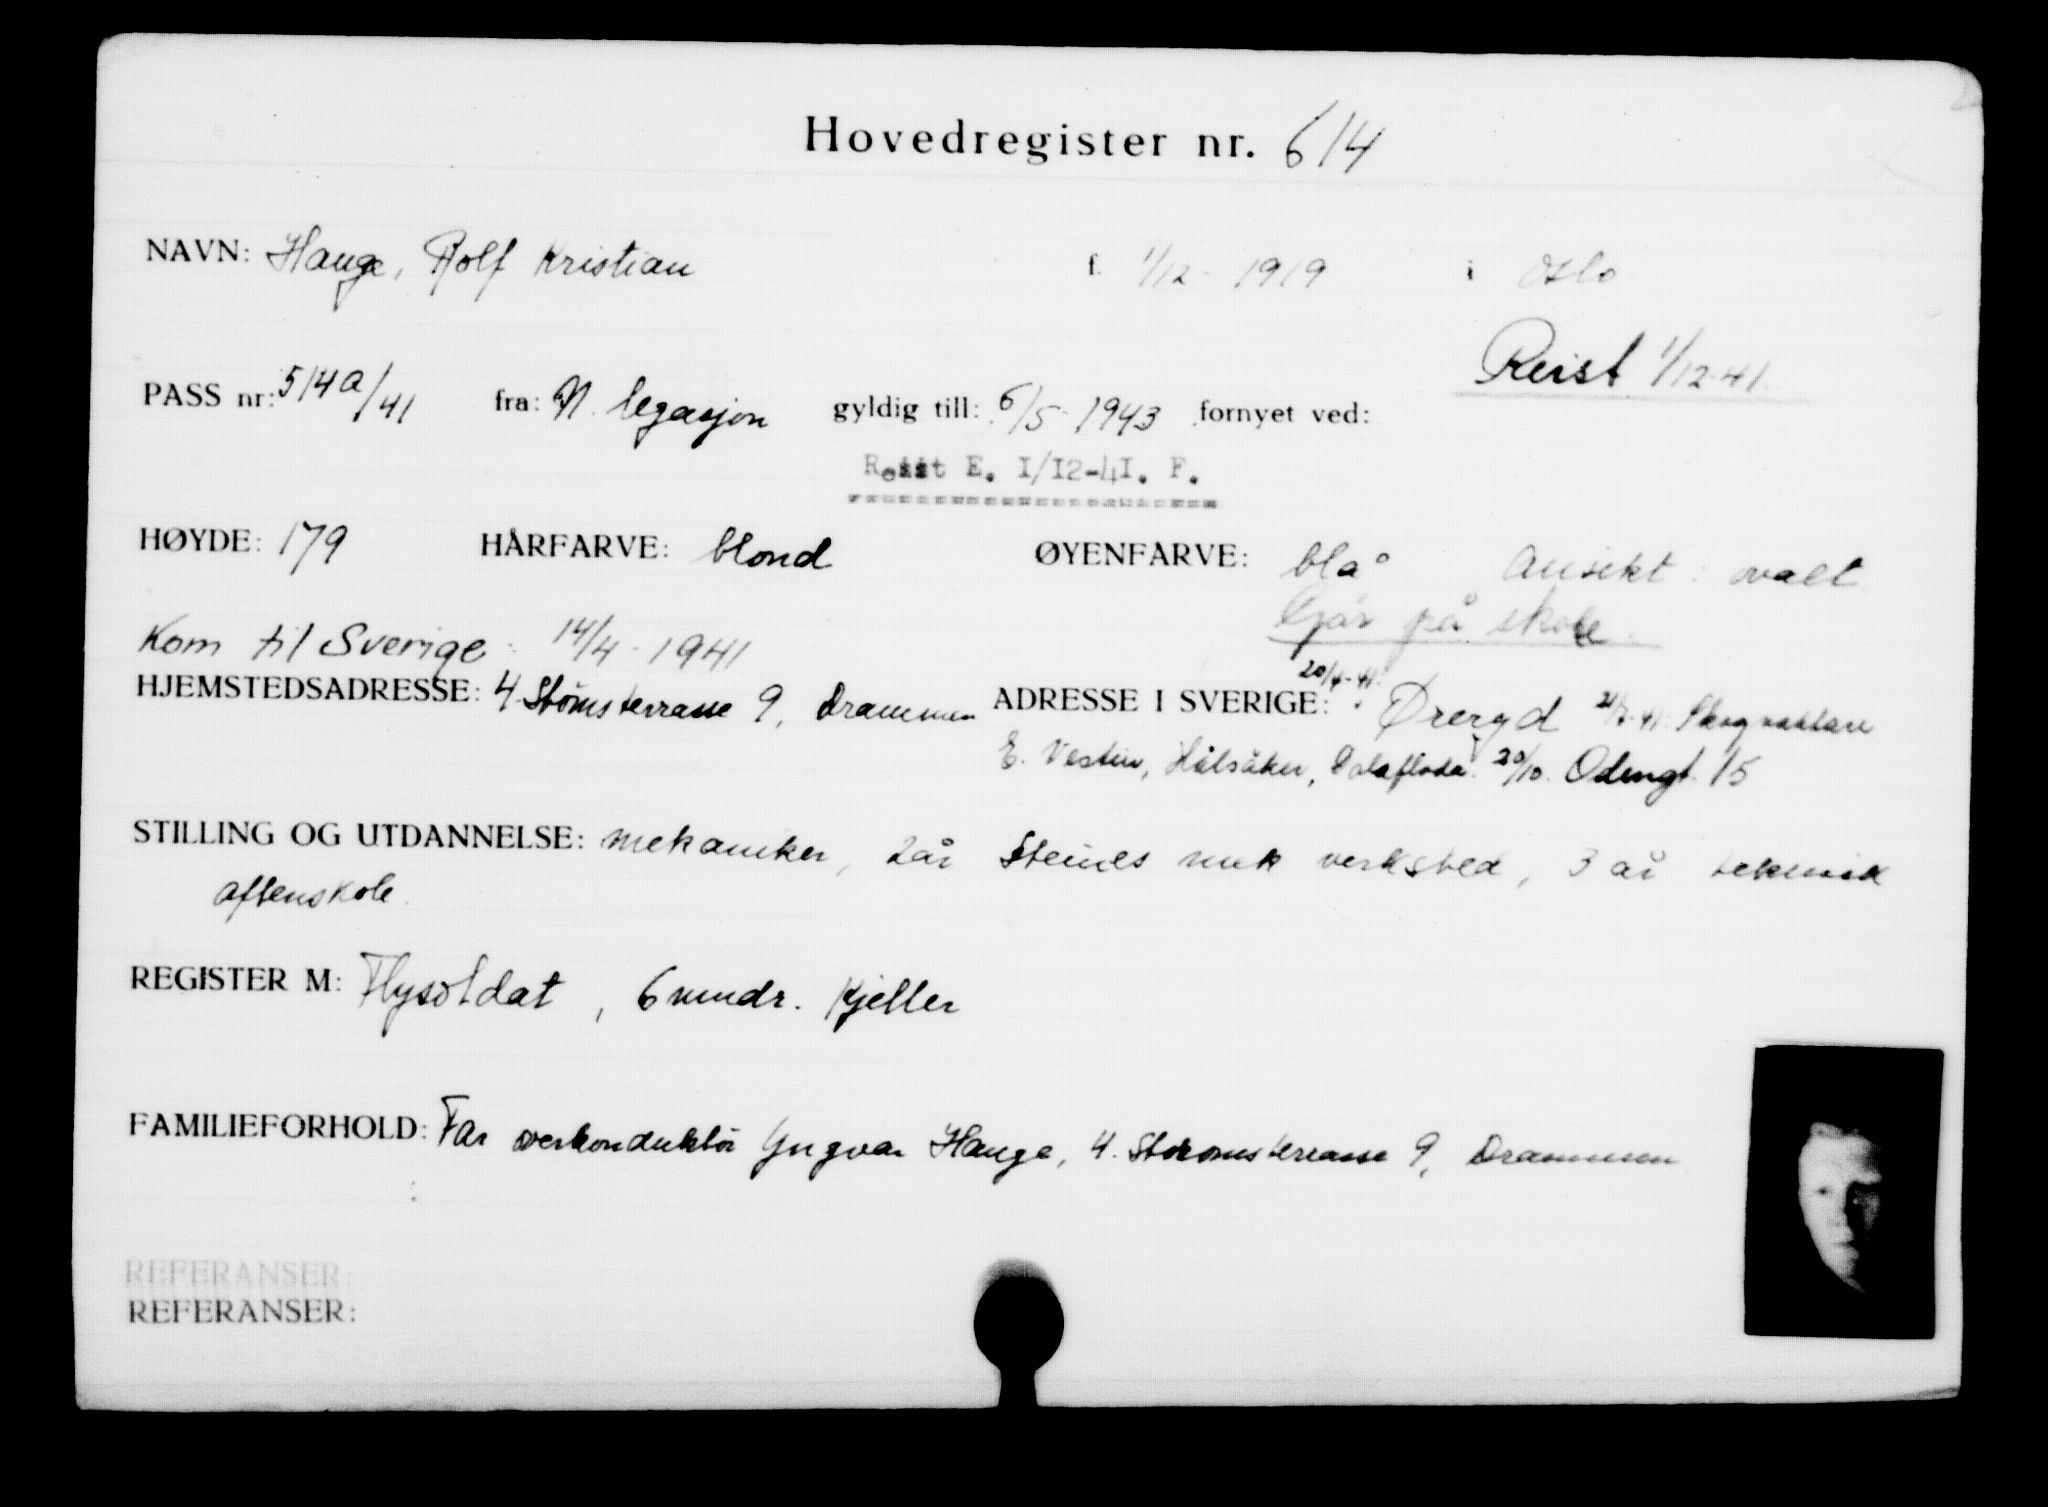 Hovedregister nr. 614
NAVN: Hauge, Rolf Kristian f. 1/12 - 1919 i Oslo
Reist 1/12-41.
PASS nr: 514a/41 fra: N. legasjon gyldig till: 6/5 1943 fornyet ved:
Reist E. I/I2-4I. F.
HØYDE: 179 HÅRFARVE: blond ØYENFARVE: blå Ansikt: ovalt
Går på skole.
Kom til Sverige: 14/4 - 1941
20/4-41.
HJEMSTEDSADRESSE: 4 Stømsterrasse 9, Drammen ADRESSE I SVERIGE: Øreryd Skogvaktare
E. Vestin, Hålsåker, Dalafloda. 20/10. Odengt. 15
STILLING OG UTDANNELSE: mekaniker, 2 år Steines mek verksted, 3 år teknisk
aftenskole.
REGISTER M: Flysoldat, 6 mndr. Kjeller
FAMILIEFORHOLD: Far overkonduktør Yngvar Hauge, 4. Strømsterrasse 9, Drammen
REFERANSER:
REFERANSER: